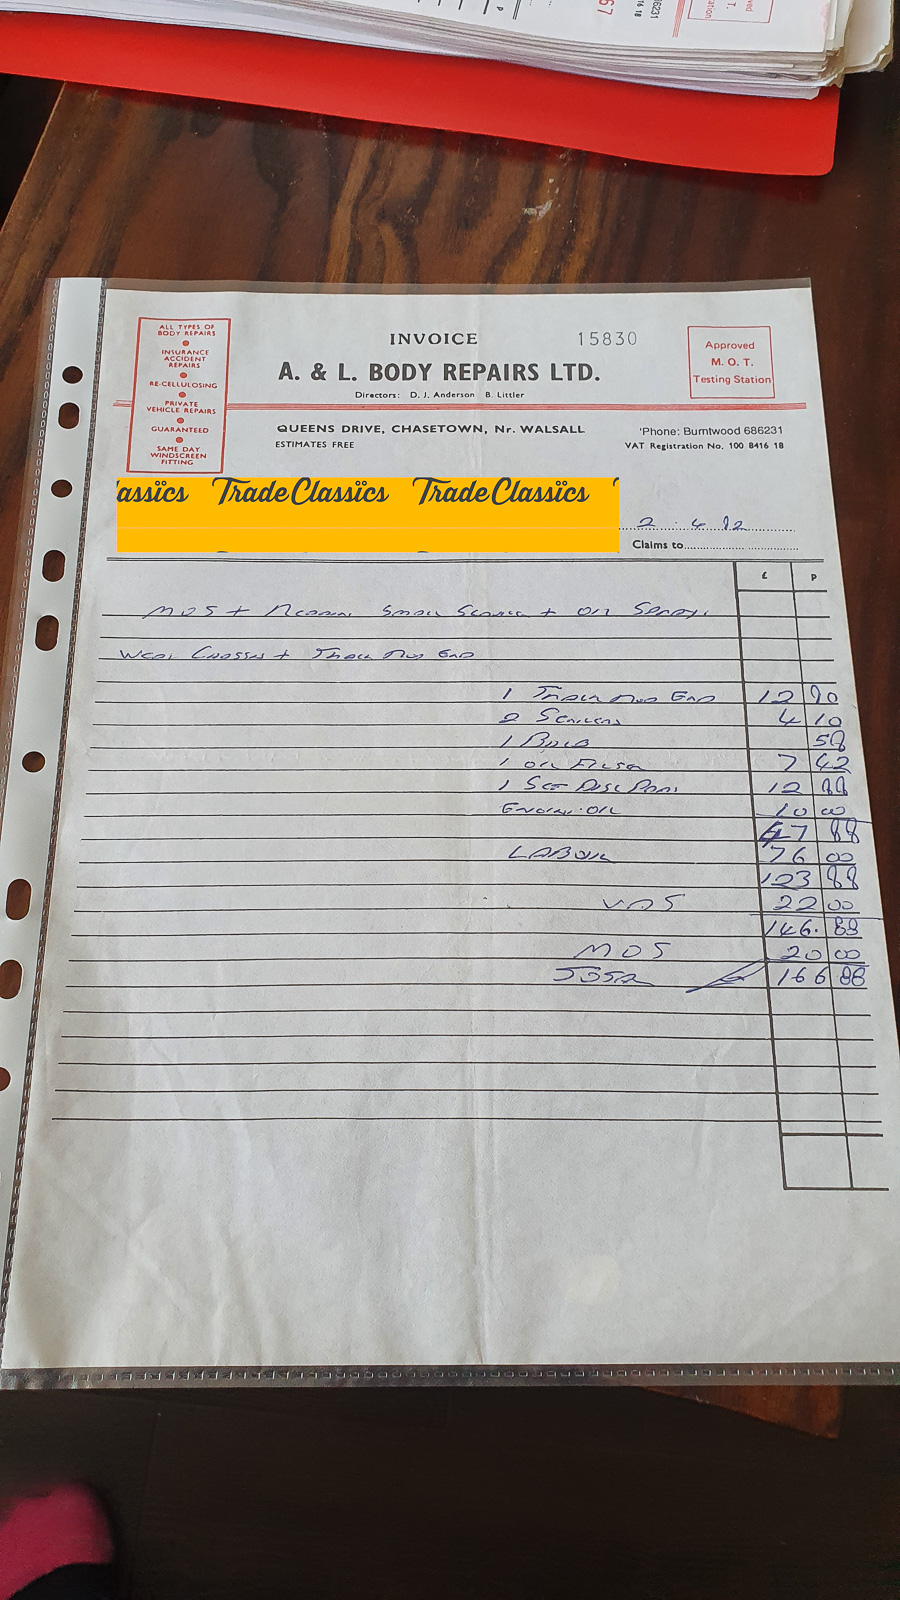 ALL TYPES OF
BODY REPAIRS
INSURANCE
ACCIDENT
REPAIRS
RE-CELLULOSING
PRIVATE
VEHICLE REPAIRS
GUARANTEED
SAME DAY
WINDSCREEN
FITTING
INVOICE 15830
A. & L. BODY REPAIRS LTD.
Directors: D. J. Anderson B. Littler
Approved
M. O. T.
Testing Station
QUEENS DRIVE, CHASETOWN, Nr. WALSALL
ESTIMATES FREE
'Phone: Burntwood 686231
VAT Registration No. 100 8416 18
assics TradeClassics TradeClassics
Claims to
£ P
MOT + Small Service + Oil
+ Track Rod End
1 Track Rod End 12 90
2 4 10
1 Bulb 58
1 Oil Filter 7 42
1 Set Disc Pads 12 88
Engine Oil 10 00
47 88
LABOUR 76 00
123 88
VAT 22 00
146.88
MOT 20 00
TOTAL 166 88